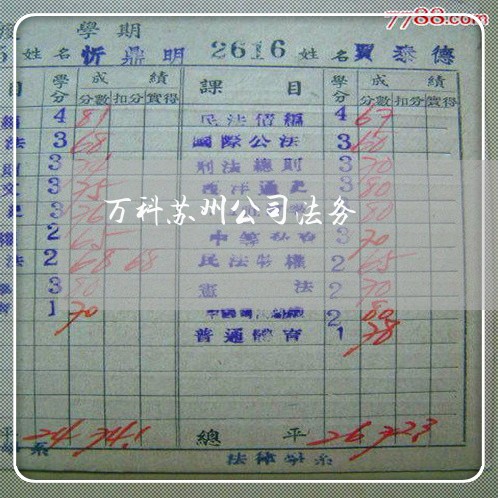 7788.com
學期
姓名 忻鼎明 2616 姓名 賈泰德
目 學分 成績 課目 學分 成績
分數 扣分 實得 分數 扣分 實得
4 81 民法債編 4 67
法 3 68 國際公法 3 60
3 刑法總則 3 70
3 75 西洋通史 3 80
3 76 3 80
万科苏州公司法务
權 2 65 3 70
法 2 68 68 民法物權 2 65
3 80 憲法 2 70
1 70 2 80
普通體育 1 78
平 24 74.1 總平 26 72.3
系 法律學系